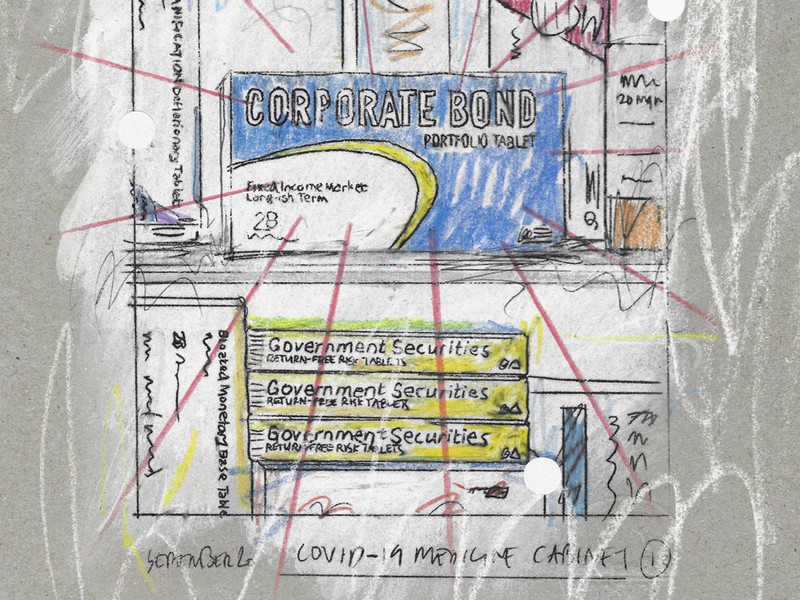 Deflationary Tablet
CORPORATE BOND
PORTFOLIO TABLET
Fixed Income Market
Long-ish Term
28
20 Mgr
28
Bloated Monetary Base Table
Government Securities
RETURN-FREE RISK TABLETS
Government Securities
RETURN-FREE RISK TABLETS
Government Securities
RETURN-FREE RISK TABLETS
SEPTEMBER 2
COVID-19 MEDICINE CABINET 1